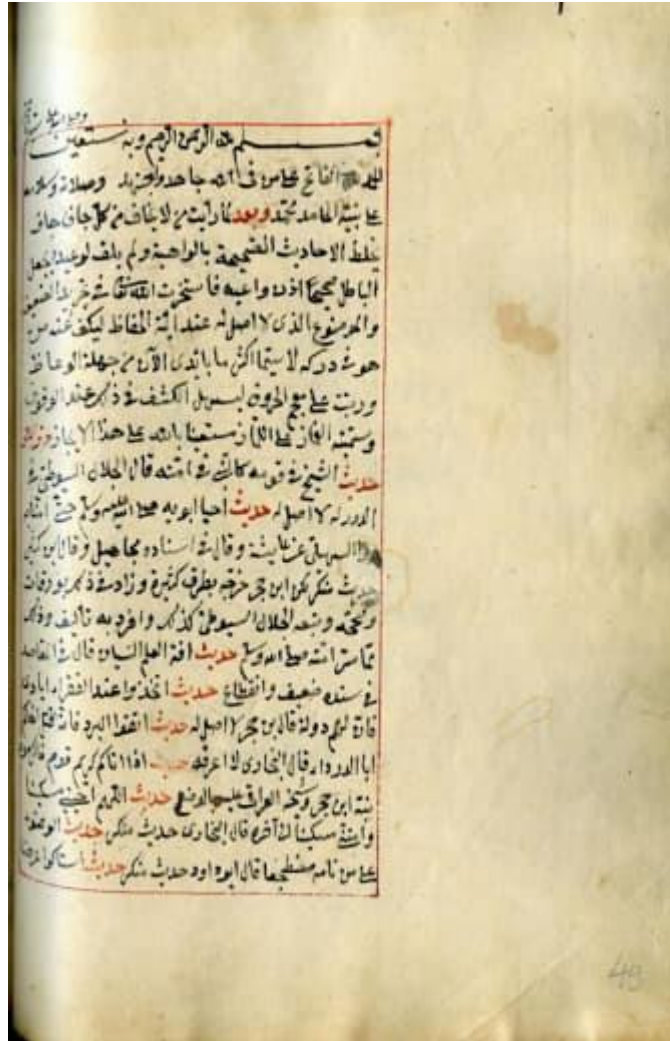 بسم الله الرحمن الرحيم وبه نستعين
الفاتح على من في جاحد وصلاة وسلاما
على نبيه الحامد محمد وبعد لما رأيت من لا يخاف من كل جاف حاف
يخلط الاحاديث الصحيحة بالواهية ولم يلف لوعيد الجعل
الباطل صحيحا اذن واعيه فاستخرت الله تعالى في الضعيف
والموضوع الذي لا اصل له عند ائمة الحفاظ ليكف عنه من
هو في دركه لا سيما اكثر ما بايدي الآن من جهلة الوعاظ
ورتبت على معجم الحروف ليسهل الكشف في ذلك عند الوقوف
وسميته على مستعينا بالله على هذا الايجاز
حديث الشيخ في قومه كالنبي في امته قال الجلال السيوطي في
الدرر لا اصل له حديث احيا ابويه صلى الله عليه وسلم حتى
السهيلي عن عايشة وقال في اسناده مجاهيل وقال ابن كثير
حديث منكر لكن ابن حجر خرجه بطرق كثيرة وزاد في ذلك
وتبعه الجلال السيوطي كذلك وافرد به تأليف وذلك
صلى الله وسلم حديث افة العلم النسيان قال في المقاصد
في سنده ضعيف وانقطاع حديث اتخذوا عند الفقراء ايادي
فان لهم دولة قال ابن حجر لا اصل له حديث اتقوا البرد فانه قتل اخاكم
ابا الدرداء قال السخاوي لا اعرفه حديث اذا اتاكم كريم قوم
ابن حجر وشيخه العراقي عليه حديث اللهم احيني مسكينا
وامتني مسكينا الى آخره قال البخاري حديث منكر حديث الوضوء
على من نام مضطجعا قال ابو داود حديث منكر حديث استاكوا عرضا
49